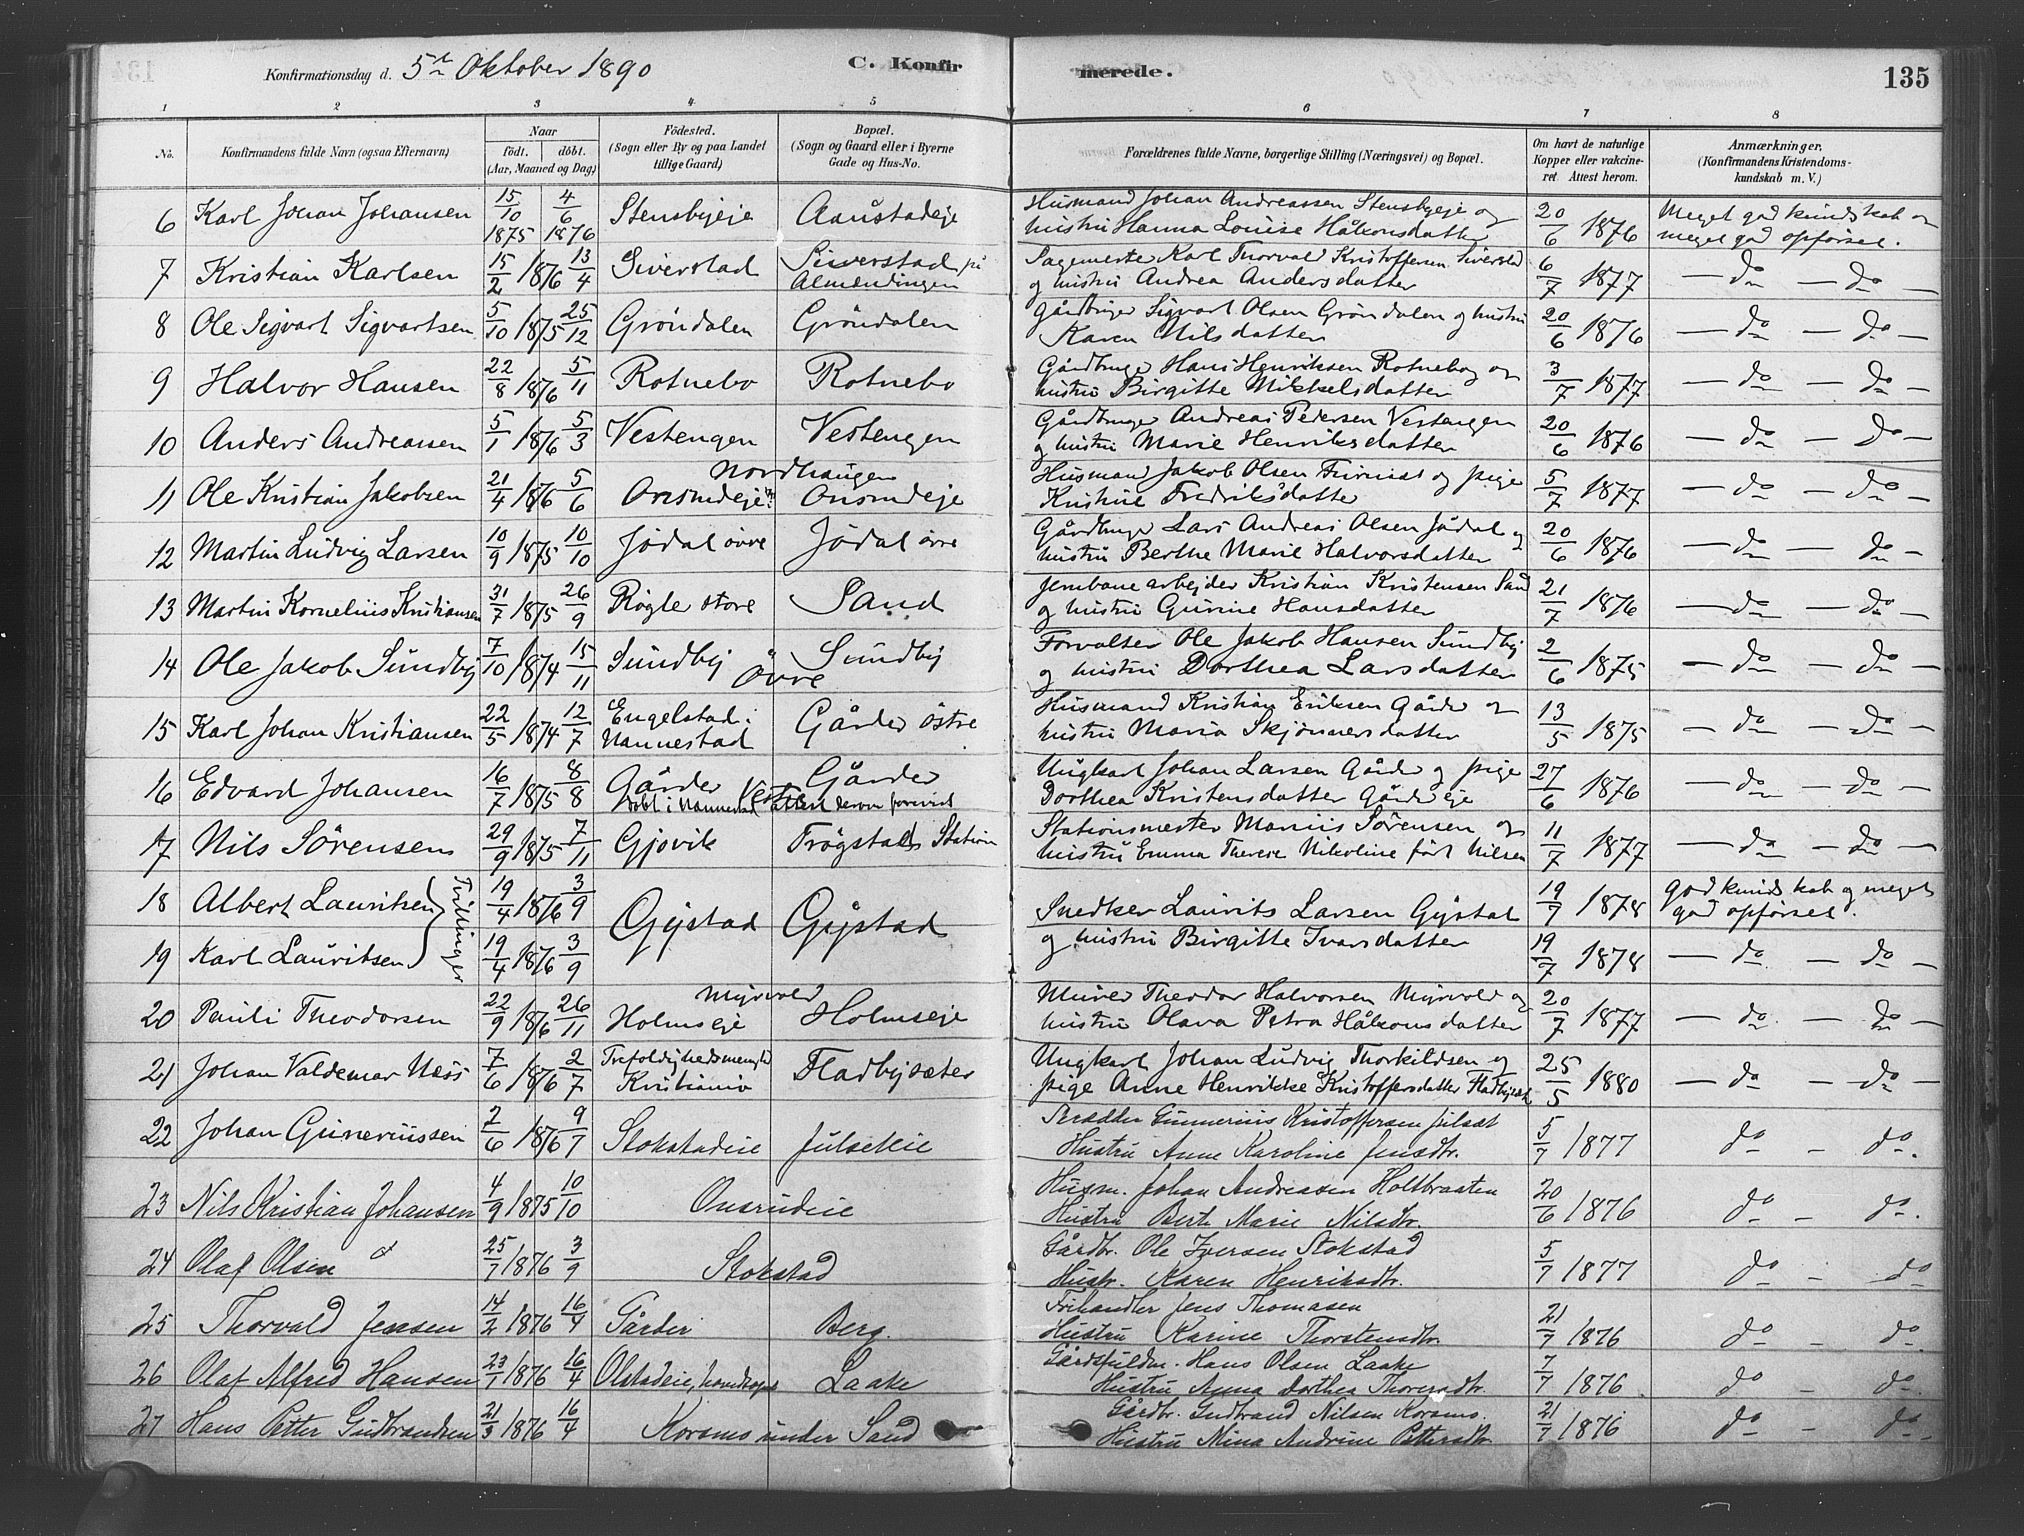 Konfirmationsdag d. 5te Oktober 1890 C. Konfirmerede. 135
1 2 3 4 5 6 7 8
No. Konfirmandens fulde Navn (ogsaa Efternavn) Naar født. døbt. (Aar, Maaned og Dag) Fødested. (Sogn eller By og paa Landet tillige Gaard) Bopæl. (Sogn og Gaard eller i Byerne Gade og Hus-No. Forældrenes fulde Navne, borgerlige Stilling (Næringsvei) og Bopæl. Om havt de naturlige Kopper eller vakcineret Attest herom. Anmærkninger. (Konfirmandens Kristendomskundskab m. V.)
6 Karl Johan Johansen 15/10 1875 4/6 1876 Stensbyeje Aaustadeje Husmand Johan Andreassen Stensbyeje og hustru Hanna Louise Håkonsdatter 20/6 1876 Meget god kundskab og meget god opførsel.
7 Kristian Karlsen 15/2 1876 13/4 Siverstad Siverstad på Almendingen Sagemester Karl Thorvald Kristoffersen Siverstad og hustru Andrea Andersdatter 6/7 1877 — do — do —
8 Ole Sigvart Sigvartsen 5/10 1875 25/12 Grøndalen Grøndalen Gårdbruger Sigvart Olsen Grøndalen og hustru Karen Nilsdatter 20/6 1876 — do — do —
9 Halvor Hansen 22/8 1876 5/11 Rotnebo Rotnebo Gårdbruger Hans Henriksen Rotnebo og hustru Birgitte Mikkelsdatter 3/7 1877 — do — do —
10 Anders Andreassen 5/1 1876 5/3 Vestengen Vestengen Gårdbruger Andreas Pedersen Vestengen og hustru Marie Henriksdatter 20/6 1876 — do — do —
11 Ole Kristian Jakobsen 21/4 1876 5/6 Nordhaugen Onsrudeje Onsrudeje Husmand Jakob Olsen og pige Kristine Fredriksdatter 5/7 1877 — do — do —
12 Martin Ludvig Larsen 10/9 1875 10/10 Jødal øvre Jødal øvre Gårdbruger Lars Andreas Olsen Jødal og hustru Berthe Marie Halvorsdatter 20/6 1876 — do — do —
13 Martin Kornelius Kristiansen 31/7 1875 26/9 Røgle store Sand Jernbanearbejder Kristian Kristensen Sand og hustru Gurine Hansdatter 21/7 1876 — do — do —
14 Ole Jakob Sundby 7/10 1874 15/11 Sundby Øvre Sundby Forvalter Ole Jakob Hansen Sundby og hustru Dorthea Larsdatter 2/6 1875 — do — do —
15 Karl Johan Kristiansen 22/5 1874 12/7 Engelstad i Nannestad Gårder østre Husmand Kristian Eriksen Gårder og hustru Maria Skjønnersdatter 13/5 1875 — do — do —
16 Edvard Johansen 16/7 1875 8/8 Gårder Vestre Gårder døbt i Nannestad attest derom forevist Ungkarl Johan Larsen Gårder og pige Dorthea Kristensdatter Gårdereje 27/6 1876 — do — do —
17 Nils Sørensen 29/9 1875 7/11 Gjøvik Trøgstads Station Stationsmester Marius Sørensen og hustru Emma Therese Nikoline født Nilsen 11/7 1877 — do — do —
18 Albert Lauritsen Tvillinger 19/4 1876 3/9 Gystad Gystad Snedker Laurits Larsen Gystad og hustru Birgitte Ivarsdatter 19/7 1878 God kundskab og meget god opførsel.
19 Karl Lauritsen 19/4 1876 3/9 19/7 1878 — do — do —
20 Pauli Theodorsen 22/9 1876 26/11 Myrvold Holmseje Holmseje Murer Theodor Halvorsen Myrvold og hustru Olava Petra Håkonsdatter 20/7 1877 — do — do —
21 Johan Valdemar Næss 7/6 1876 2/7 Trefoldighedsmenighed Kristiania Fladbysæter Ungkarl Johan Ludvig Thorkildsen og pige Anne Henrikke Kristoffersdatter Fladbysæt 25/5 1880 — do — do —
22 Johan Guneriussen 2/6 1876 9/7 Stokstadeie Julseteie Gunnerius Kristoffersen Julset Hustru Anne Karoline Jensdtr. 5/7 1877 do - do.
23 Nils Kristian Johansen 4/9 1875 10/10 Onsrudeie Husm. Johan Andreasen Holtbraaten Hustru Berte Marie Nilsdtr. 20/6 1876 do - do.
24 Olaf Olsen 25/7 1876 3/9 Stokstad Gårdbr. Ole Iversen Stokstad Hustr. Karen Henriksdtr. 5/7 1877 do - do
25 Thorvald Jensen 14/2 1876 16/4 Gårder Berg. Frihandler Jens Thomasen Hustru Karine Thorstensdtr. 21/7 1876 do - do.
26 Olaf Alfred Hansen 23/1 1876 16/4 Olstadeie, Laake Gårdsfuldm. Hans Olsen Laake Hustru Anna Dorthea Thoresdtr. 7/7 1876 do - do.
27 Hans Petter Gudbrandsen 21/3 1876 16/4 Korsmo under Sand Gårdbr. Gudbrand Nilsen Korsmo. Hustru Mina Andrine Pettersdtr. 21/7 1876 do - do -